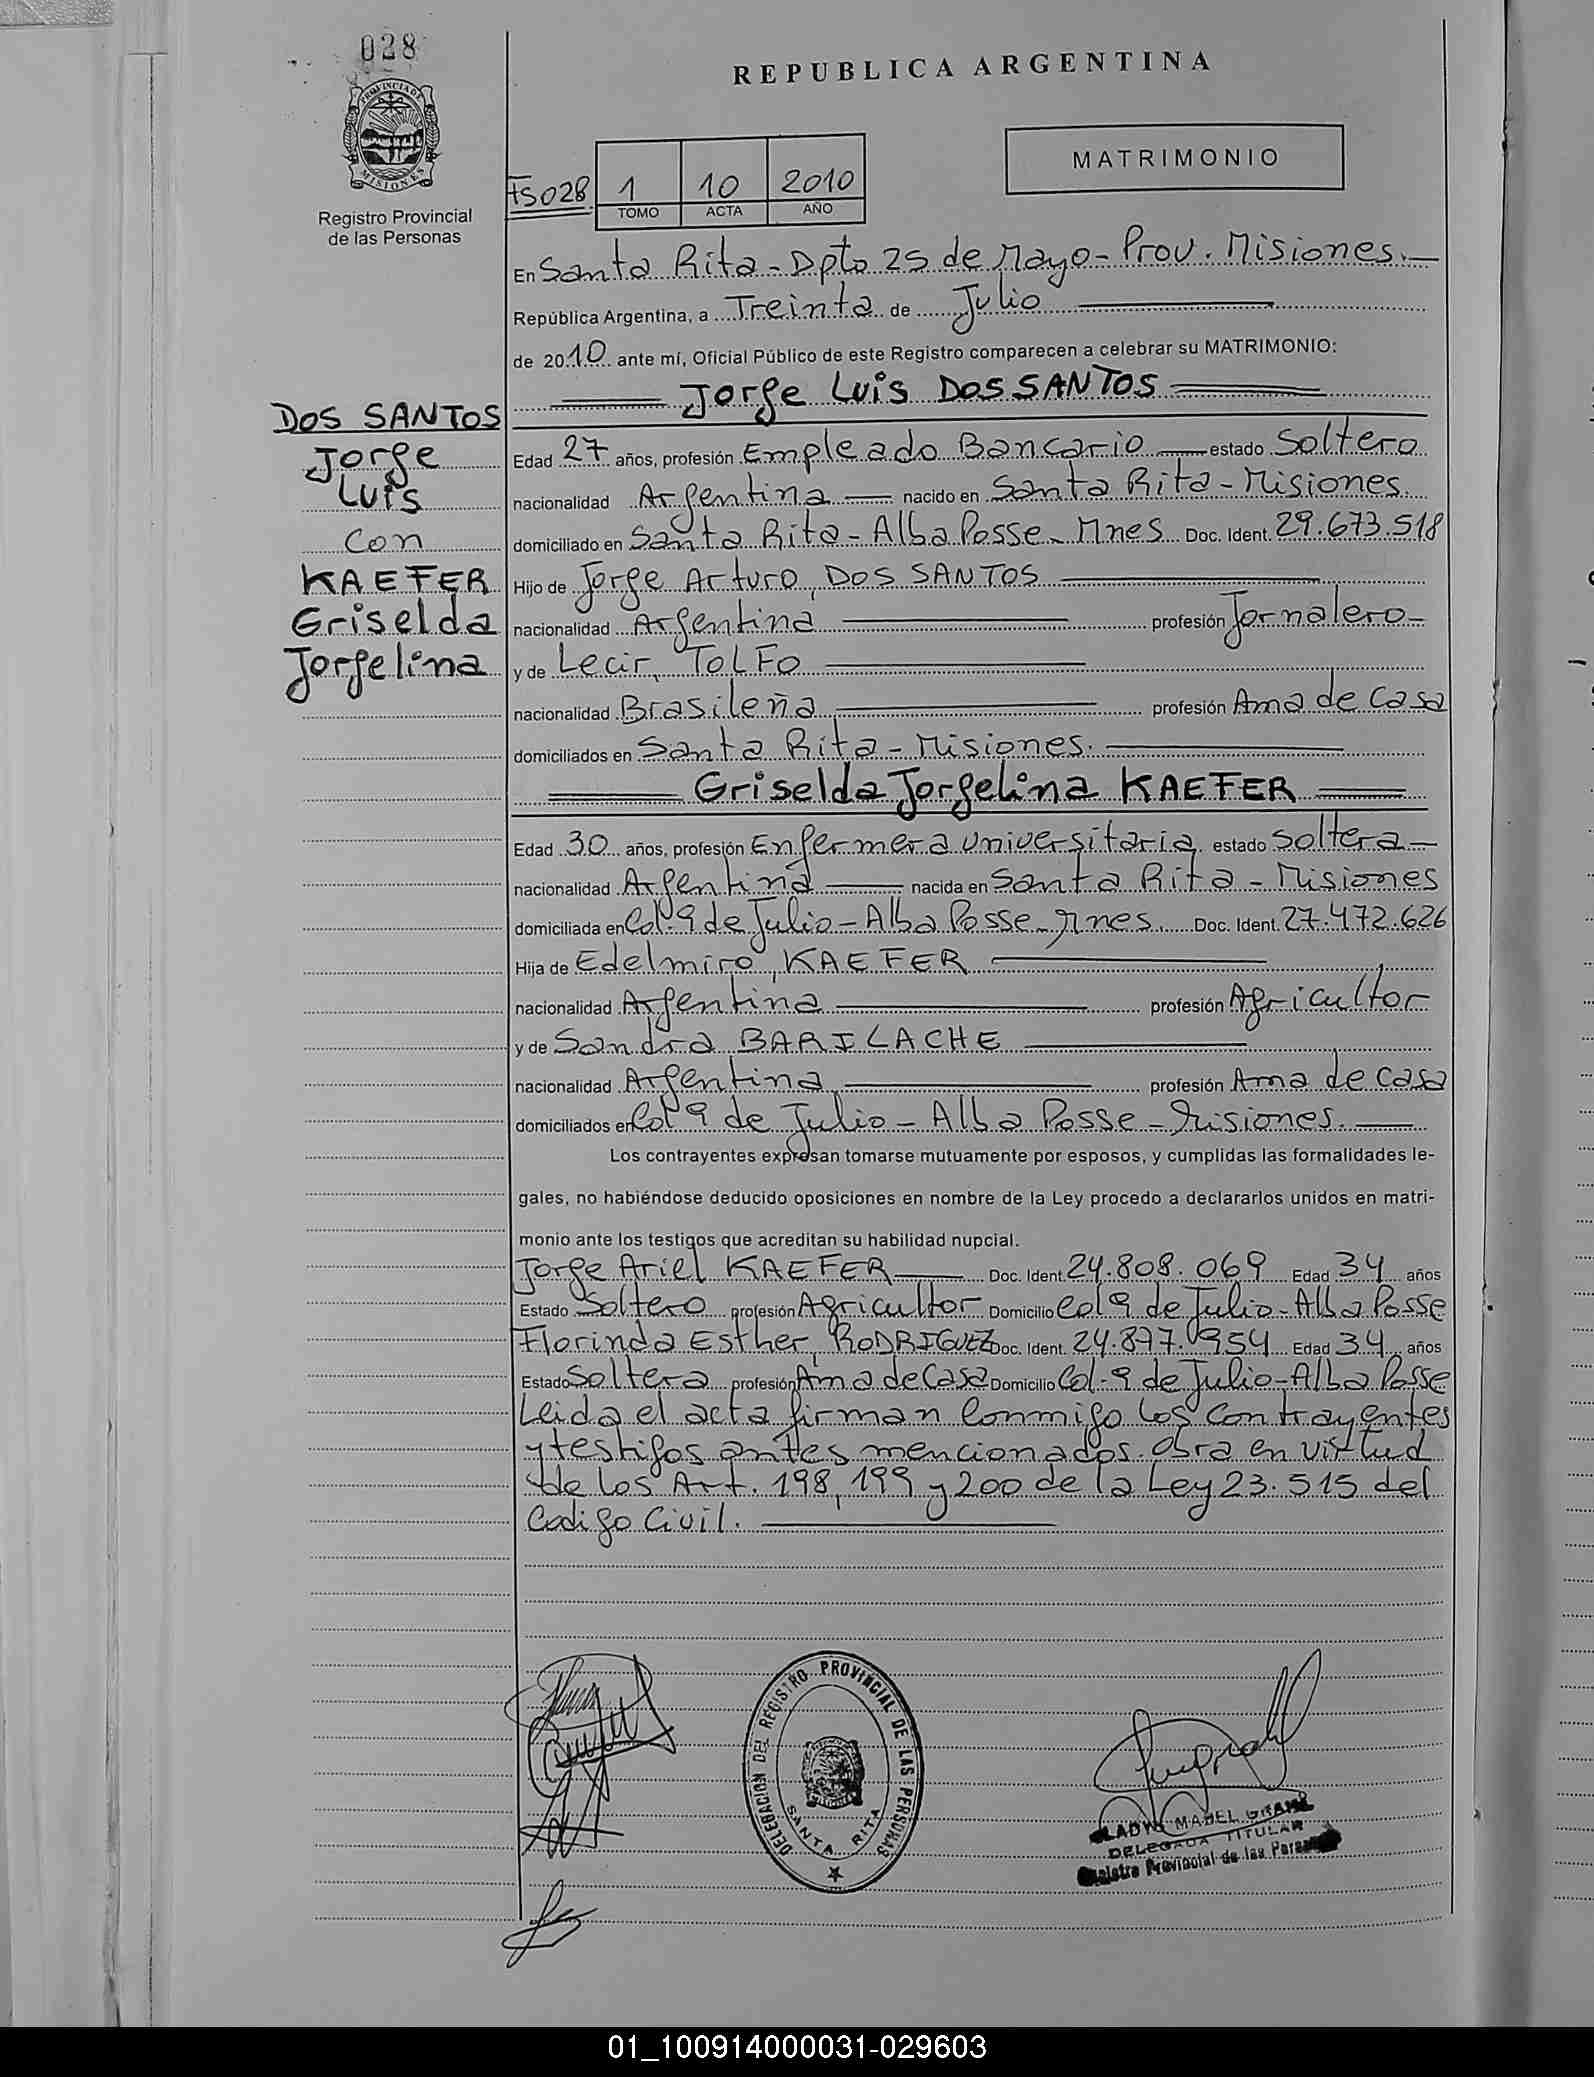 028
REPUBLICA ARGENTINA
PROVINCIA DE MISIONES
MATRIMONIO
Fs 028 1 10 2010
TOMO ACTA AÑO
Registro Provincial
de las Personas
En Santa Rita - Dpto 25 de Mayo - Prov. Misiones.
República Argentina, a Treinta de Julio
de 2010 ante mí, Oficial Público de este Registro comparecen a celebrar su MATRIMONIO:
Jorge Luis DOS SANTOS
DOS SANTOS
Jorge
Luis
con
KAEFER
Griselda
Jorgelina
Edad 27 años, profesión Empleado Bancario estado Soltero
nacionalidad Argentina nacido en Santa Rita - Misiones.
domiciliado en Santa Rita - Alba Posse - Mnes Doc. Ident. 29.673.518
Hijo de Jorge Arturo, DOS SANTOS
nacionalidad Argentina profesión Jornalero
y de Lecir, TOLFO
nacionalidad Brasileña profesión Ama de Casa
domiciliados en Santa Rita - Misiones.
Griselda Jorgelina KAEFER
Edad 30 años, profesión Enfermera universitaria estado Soltera
nacionalidad Argentina nacida en Santa Rita - Misiones
domiciliada en Col. 9 de Julio - Alba Posse - Mnes. Doc. Ident. 27.472.626
Hija de Edelmiro, KAEFER
nacionalidad Argentina profesión Agricultor
y de Sandra BARILACHE
nacionalidad Argentina profesión Ama de casa
domiciliados en Col. 9 de Julio - Alba Posse - Misiones.
Los contrayentes expresan tomarse mutuamente por esposos, y cumplidas las formalidades le-
gales, no habiéndose deducido oposiciones en nombre de la Ley procedo a declararlos unidos en matri-
monio ante los testigos que acreditan su habilidad nupcial.
Jorge Ariel KAEFER Doc. Ident. 24.808.069 Edad 34 años
Estado Soltero profesión Agricultor Domicilio Col 9 de Julio - Alba Posse
Florinda Esther, RODRIGUEZ Doc. Ident. 24.897.954 Edad 34 años
Estado Soltera profesión Ama de Casa Domicilio Col. 9 de Julio - Alba Posse
Leida el acta firman conmigo los contrayentes
y testigos antes mencionados. obra en virtud
de los Art. 198, 199 y 200 de la Ley 23.515 del
Codigo Civil.
DELEGACION DEL REGISTRO PROVINCIAL DE LAS PERSONAS
SANTA RITA
MABEL
DELEGADA TITULAR
Registro Provincial de las Personas
01_100914000031-029603